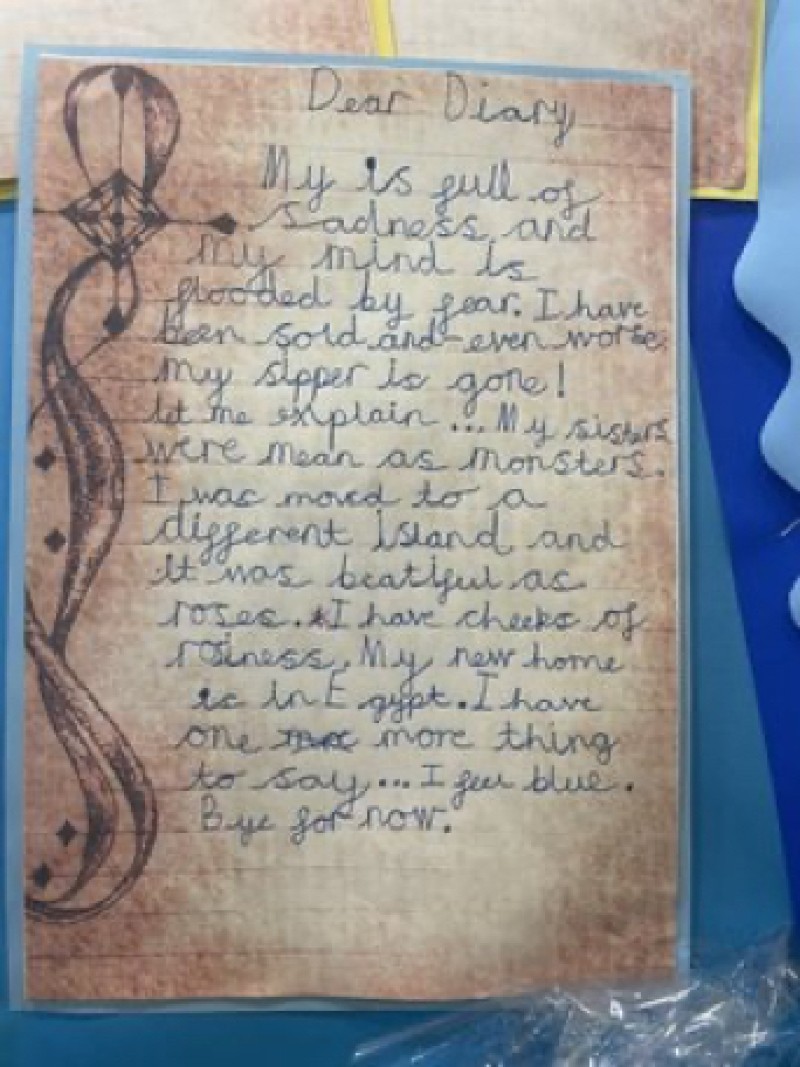 Dear Diary
My is full of
sadness and
my mind is
flooded by fear. I have
been sold and even worse
my sipper is gone!
let me explain ... My sisters
were mean as monsters.
I was moved to a
different island and
it was beatiful as
roses. *I have cheeks of
rosiness. My new home
is in Egypt. I have
one more thing
to say... I feel blue.
Bye for now.